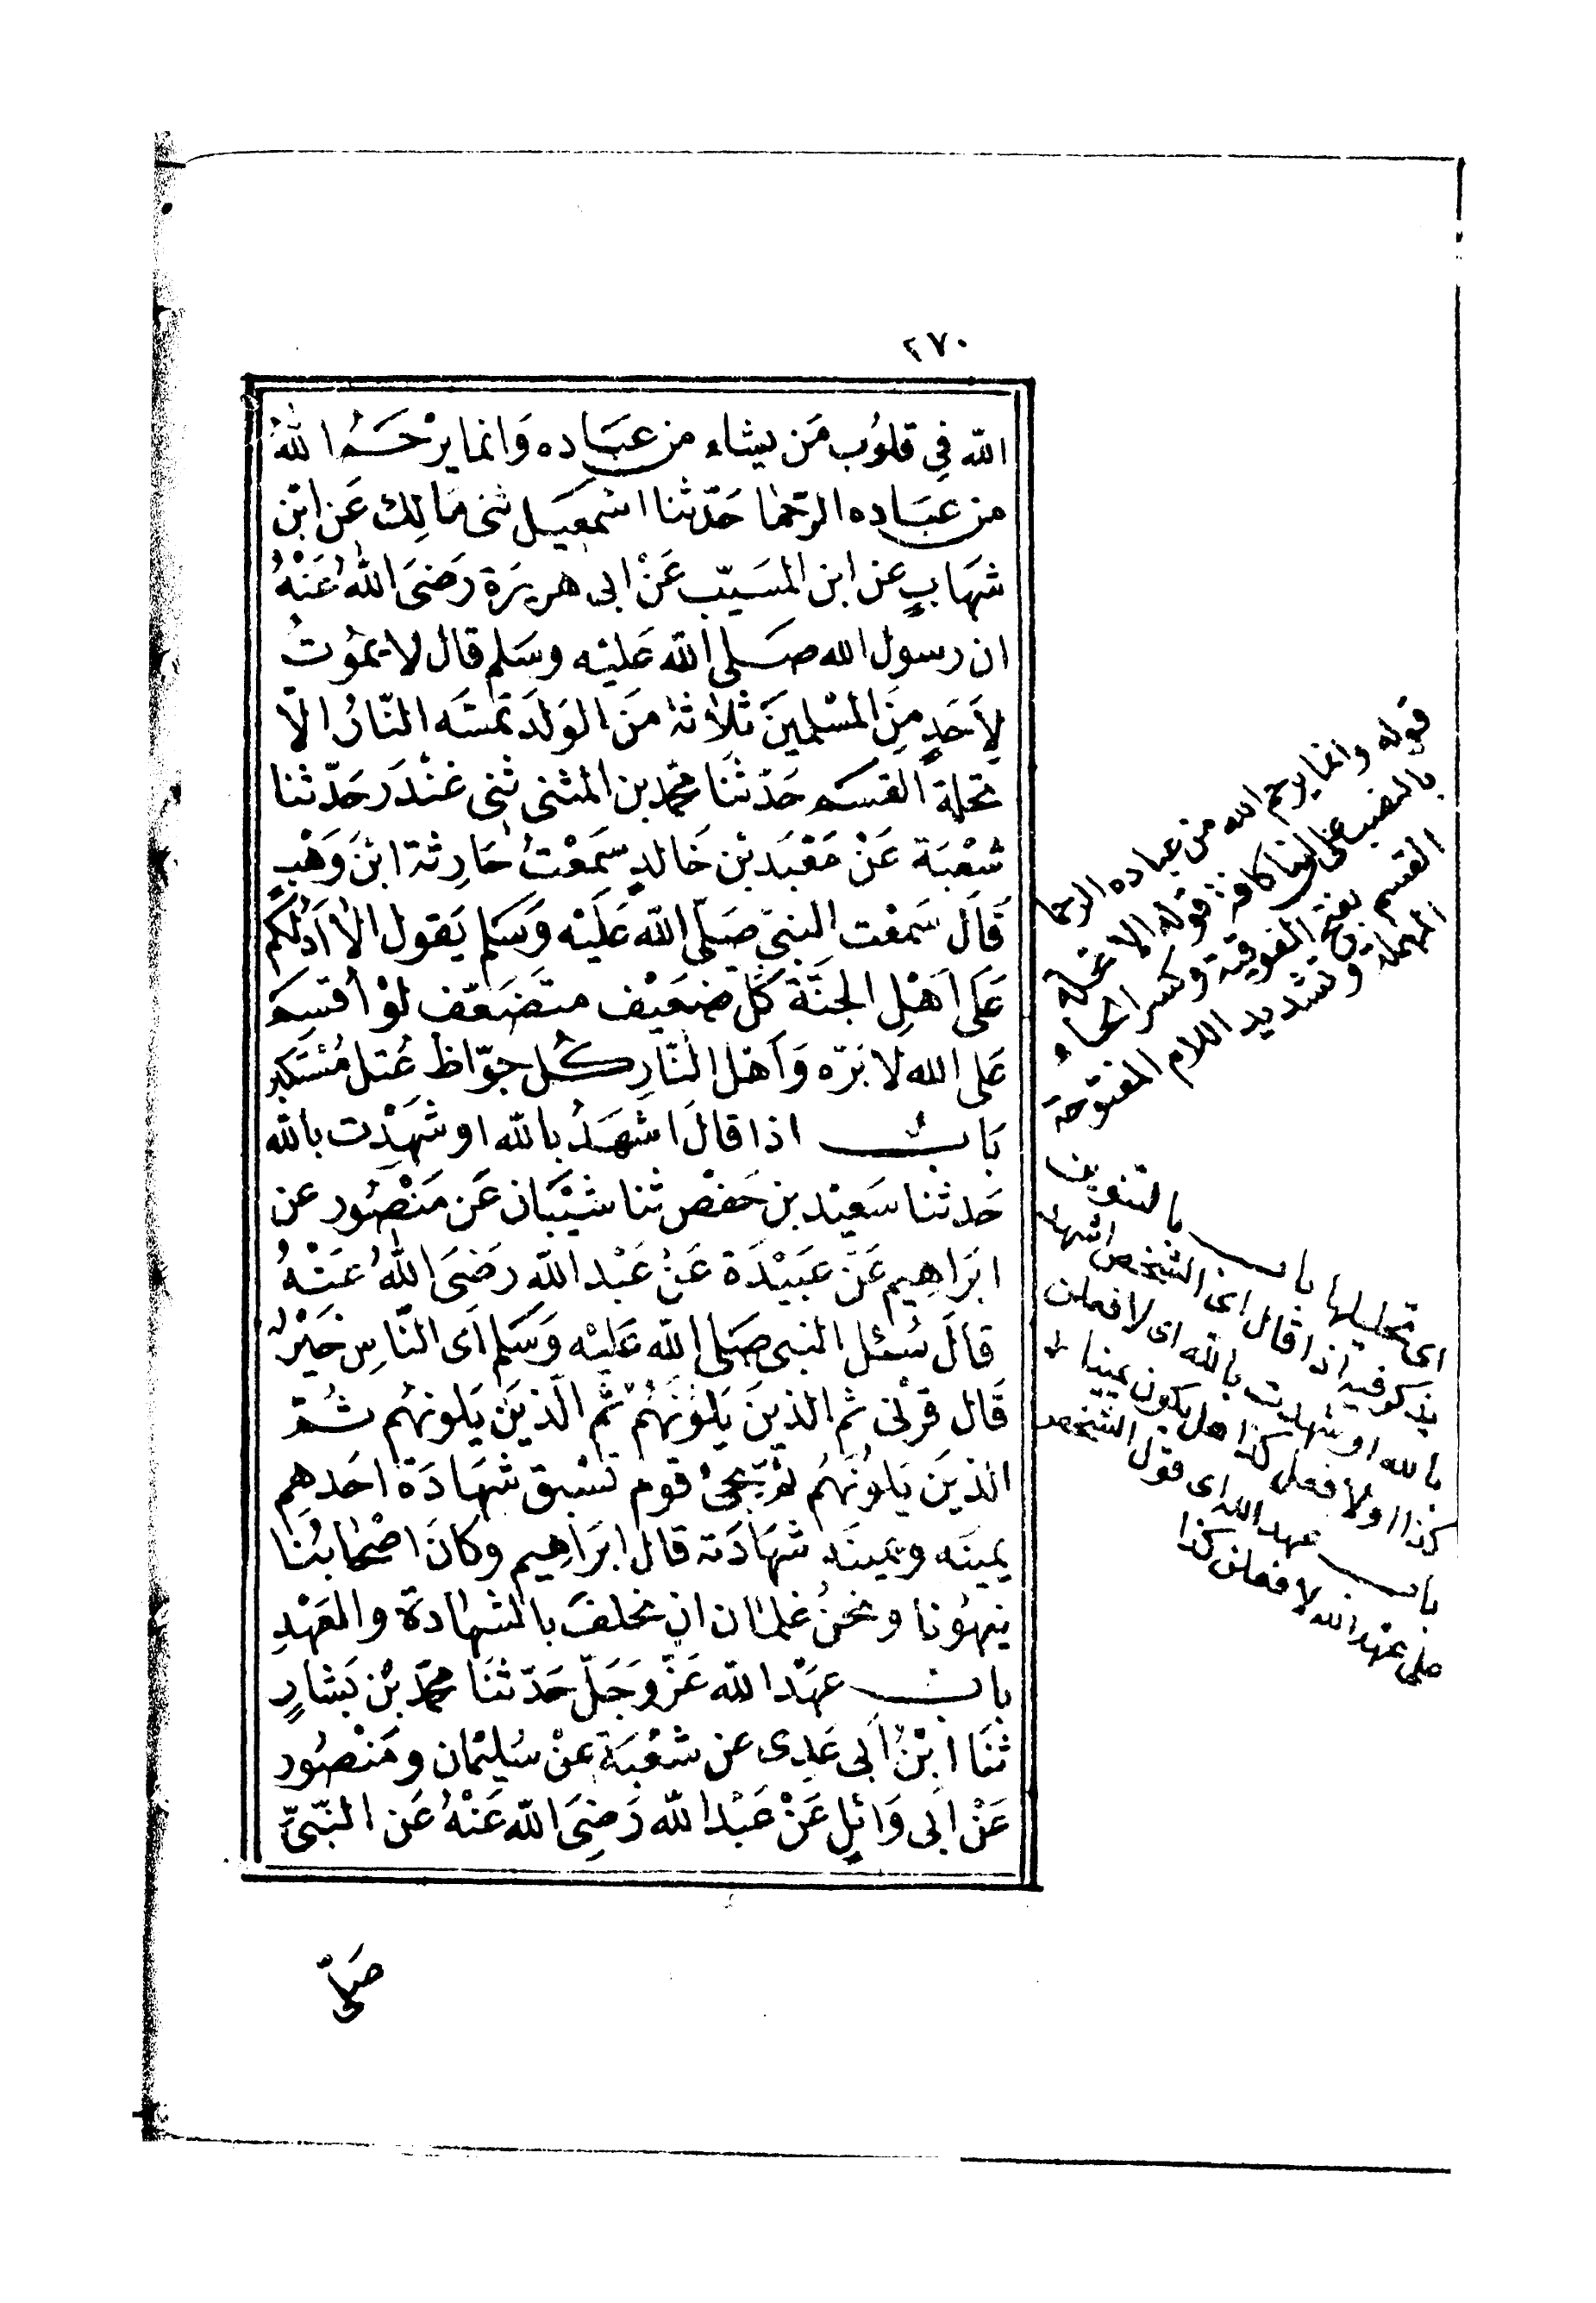 ٢٧٠
الله في قلوُب مَن يشاء من عبَاده وَانما يرْحَمُ اللهُ
من عبَاده الرّحما حَدّثنا اسْمعيَل ثنى مَالِك عَن ابْن
شهَابٍ عن ابن المسَيّب عَنْ ابى هريرَة رَضىَ اللهُ عَنْهُ
ان رسول الله صَلى الله عَليْه وسَلم قال لا يمُوتُ
لِأَحَدٍ مِنَ المسْلمينَ ثلاثة مَنَ الوَلَد تمسّه النّارُ الاّ
تحلة القسَم حَدّثنَا محمّد بن المثنى ثنى غنْدَر حَدّثنا
شعْبَة عَنْ مَعْبَد بْن خَالدٍ سَمعْتُ حَارِثة ابْنَ وَهْبٍ
قَالَ سَمعْت النبيّ صَلى الله عَلَيْه وَسَلم يَقول الا اَدُلكُم
عَلى اَهْلِ الجنَّة كلّ ضعَيْف متَضَعّف لَوْ أقسَم
عَلى الله لابَرّه وَاَهْل النّارِ كُل جوّاظ عُتل مُسْتكبر
بَابٌ اذا قالَ اَشهَدُ بالله او شهَدْت بالله
حَدثنا سَعيْد بن حَفص ثنا شيْبَان عَن مَنْصُور عن
ابَراهِيم عَنَ عَبيْدَة عَنْ عَبْد الله رَضَىَ اللهُ عَنْهُ
قالَ سُئل النبى صَلى الله عَليْه وَسَلم اَى النّاسِ خَيْرٌ
قَال قرْنى ثم الذينَ يَلوُنَهُمْ ثُم الّذينَ يَلونهُم ثُمّ
الذينَ يَلوُنَهُم ثمّ يجىُ قوم تسْبق شهَادَة احَدهِم
يمينَه ويمينَه شهَادَته قال ابَراهِيم وكانَ اصْحَابُنَا
ينهوْنا ونحنُ غلمَان ان نحلفَ بالشهَادة والعَهْدِ
بابٌ عهَْد الله عَزّ وَجَلّ حَدّثنَا محمّد بْن بَشارٍ
ثنَا ابْنُ اَبى عَدِى عن شعْبَة عنْ سُليْمان ومَنْصُور
عَنْ اَبى وَائلٍ عَنْ عَبْد الله رَضِىَ الله عَنْهُ عَن النّبىِّ
صَلى
قوله وانما يرحم الله من عباده الرحما
بالنصب على ان ما كافة قوله الا تحلة
القسم بفتح الفوقية وكسر الحاء
المهملة وتشديد اللام المفتوحة
اى تحليلها باب بالتنوين
يذكر فيه اذا قال اى الشخص اشهد
بالله او شهدت بالله اى لافعلن
كذا اولا فعل كذا هل يكون يمينا
باب عهد الله اى قول الشخص
على عهد الله لافعلن كذا